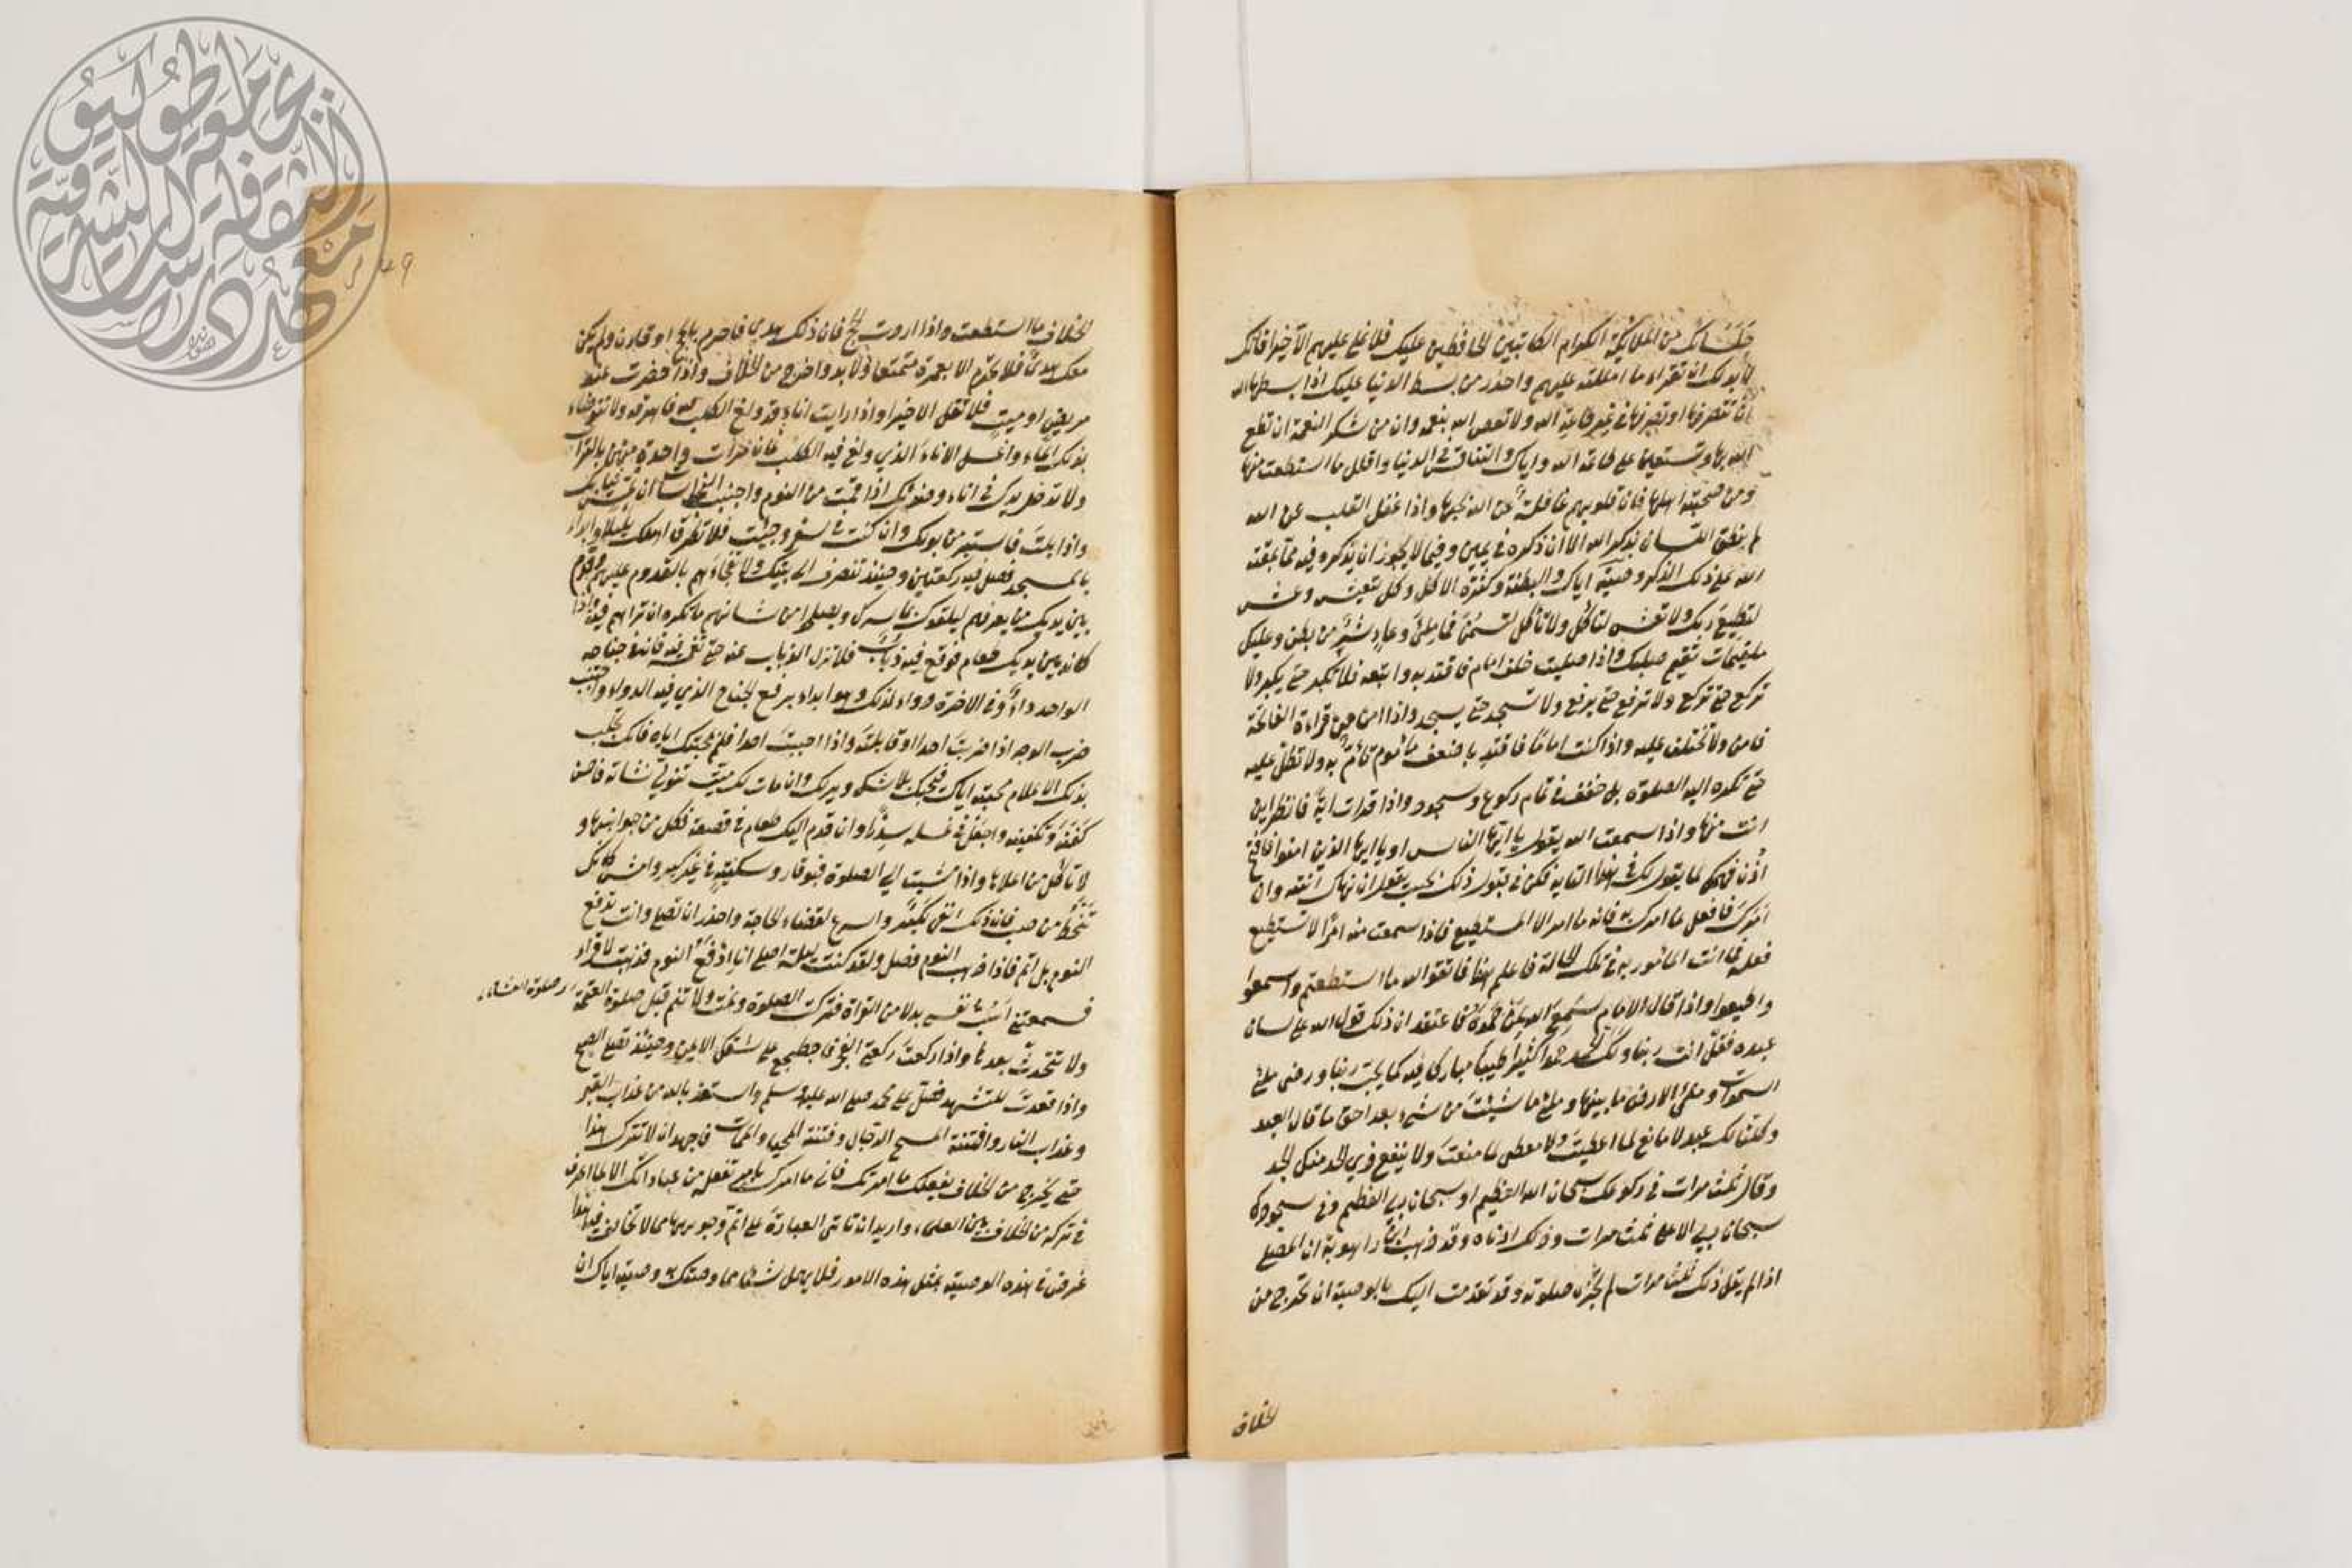 جلسائك من الملائكة الكرام الكاتبين الحافظين عليك فلا تمل عليهم الا خيرا فانك
لا بد لك ان تقراء ما امللته عليهم واحذر من بسط الدنيا عليك اذا بسطها الله
ان تتصرف او تصرفها في غير طاعة الله ولا تعص الله بنعمه وان من شكر النعمة ان تطيع
الله بها وتستعين على طاعة الله واياك والتنافس في الدنيا واقلل ما استطعت منها
ومن صحبة اهلها فان قلوبهم غافلة عن الله بحبها واذا غفل القلب عن الله
لم ينطق اللسان بذكر الله الا ان ذكره في يمين وفيما لا يجوز ان يذكره فيه مما يمقته
الله على ذلك الذكر وصية اياك والبطنة وكثرة الاكل وكل لتعيش وعش
لتطيع ربك ولا تعش لتاكل ولا تأكل لتسمن فما ملئ وعاء شر من بطن وعليك
بلقيمات تقيم صلبك واذا صليت خلف امام فاقتد به واتبعه فلا تكبر حتى يكبر ولا
تركع حتى يركع ولا ترفع حتى يرفع ولا تسجد حتى يسجد واذا امن من قراءة الفاتحة
فامن ولا تختلف عليه واذا كنت اماما فاقتد باضعف مأموم تأتم به ولا تطل عليه
حتى تكره اليه الصلوة بل خفف في تمام ركوع وسجود واذا قرات اية فانظر اين
انت منها واذا سمعت الله يقول يا ايها الناس او يا ايها الذين امنوا فافتح
اذن فهمك لما يقول لك في هذا فكن في قبول ذلك بحسب يقول ان نهاك انته وان
امرك فافعل ما امرك به فانه ما امر الا المستطيع فاذا سمعت منه امرا لا تستطيع
فعله فما انت المامور به في تلك الحالة فاعلم هذا فاتقوا الله ما استطعتم واسمعوا
واطيعوا واذا قال الامام سمع الله لمن حمده فاعتقد ان ذلك قول الله على لسان
عبده فقل انت ربنا ولك الحمد حمدا كثيرا طيبا مباركا فيه كما يحب ربنا ويرضى ملئ
السموات وملئ الارض ما بينهما وملئ ما شئت من شيء بعد احق ما قال العبد
وكلنا لك عبد لا مانع لما اعطيت ولا معطي لما منعت ولا ينفع ذي الجد منك الجد
وقال ثلث مرات في ركوعك سبحان الله العظيم او سبحان ربي العظيم وفي سجودك
سبحان ربي الاعلى ثلث مرات وذلك ادناه وقد ذهب ابن راهوية ان المصلي
اذا لم يقل ذلك ثلث مرات لم تجز صلوته وقد تقدمت اليك بالوصية ان تخرج من
الخلاف
49
الخلاف ما استطعت واذا اردت الحج فان ذلك هدي فاحرم بالحج او قارن ولم يكن
معك هدي فلا تحرم الا بعمرة متمتعا ولا بد واخرج من الخلاف واذا حضرت عند
مريض او ميت فلا تقل الا خيرا واذا رايت اناء قد ولغ الكلب فيه فاهرقه ولا تتوضاء
بذلك الماء واغسل الاناء الذي ولغ فيه الكلب ثمان مرات واحدة منهن بالتراب
ولا تدخل يدك في اناء وضوئك اذا قمت من النوم واجتنب النجاسات ان تمس ثيابك
واذا بلت فاستبر من بولك وان كنت في سفر وجئت فلا تطرق اهلك ليلا وابداء
بالمسجد فصل فيه ركعتين وحينئذ تنصرف الى بيتك ولا تفجأهم بالقدوم عليهم وقدم
بين يديك من يعرفهم ليلقوك بما يسرك ويصلحوا من شانهم ما تكره ان تراهم فيه واذا
كان بين يديك طعام فوقع فيه ذباب فلا تزل الذباب عنه حتى تغمسه فيه فان في جناحه
الواحد داء وفي الاخرة دواء لذلك وهو ابداء يرفع الجناح الذي فيه الدواء واجتنب
ضرب الوجه اذا ضربت احدا او قاتلته واذا احببت احدا فلم بحبك اياه فانك تجلب
بذلك الاعلام محبته اياك فيحبك بلا شك وبرك وان مات لك ميت تتولي شانه فاحسن
كفنه وتكفينه واجعل في غسله سدرا وان قدم اليك طعام في قصعة فكل من جوانبها و
لا تاكل من اعلاها واذا مشيت الى الصلوة فبوقار وسكينة في غير كبر وامش كانك
تنحط من صب فان ذلك انفى للكبر واسرع لقضاء الحاجة واحذر ان تصلي وانت تدفع
النوم بل نم فاذا ذهب النوم فصل ولقد كنت ليلة اصلي انا ادفع النوم فذهبت لاقراء
فسمعتني اسب نفسي بدلا من التلاوة فتركت الصلوة ونمت ولا تنم قبل صلوة العتمة
اي صلوة العشاء
ولا تتحدث بعدها واذا ركعت ركعتي الفجر فاضطجع على شقك الايمن وحينئذ تصلي الصبح
واذا قعدت للتشهد فصل على محمد صلى الله عليه وسلم واستعذ بالله من عذاب القبر
وعذاب النار وافتنة المسيح الدجال وفتنة المحيا والممات فاجهد ان لا تترك هذا
حتى تخرج من الخلاف بفعلك ما امرتك فاني ما امرك بامر تفعله من عباداتك الا لما اعرف
في تركه من الخلاف بين العلماء واريد ان تاتي العبادة على اتم وجوهها مما لا تخالف فيه هذا
غرضي في هذه الوصية بمثل هذه الامور فلا يهمل شيئا مما وصيتك به وصية اياك ان